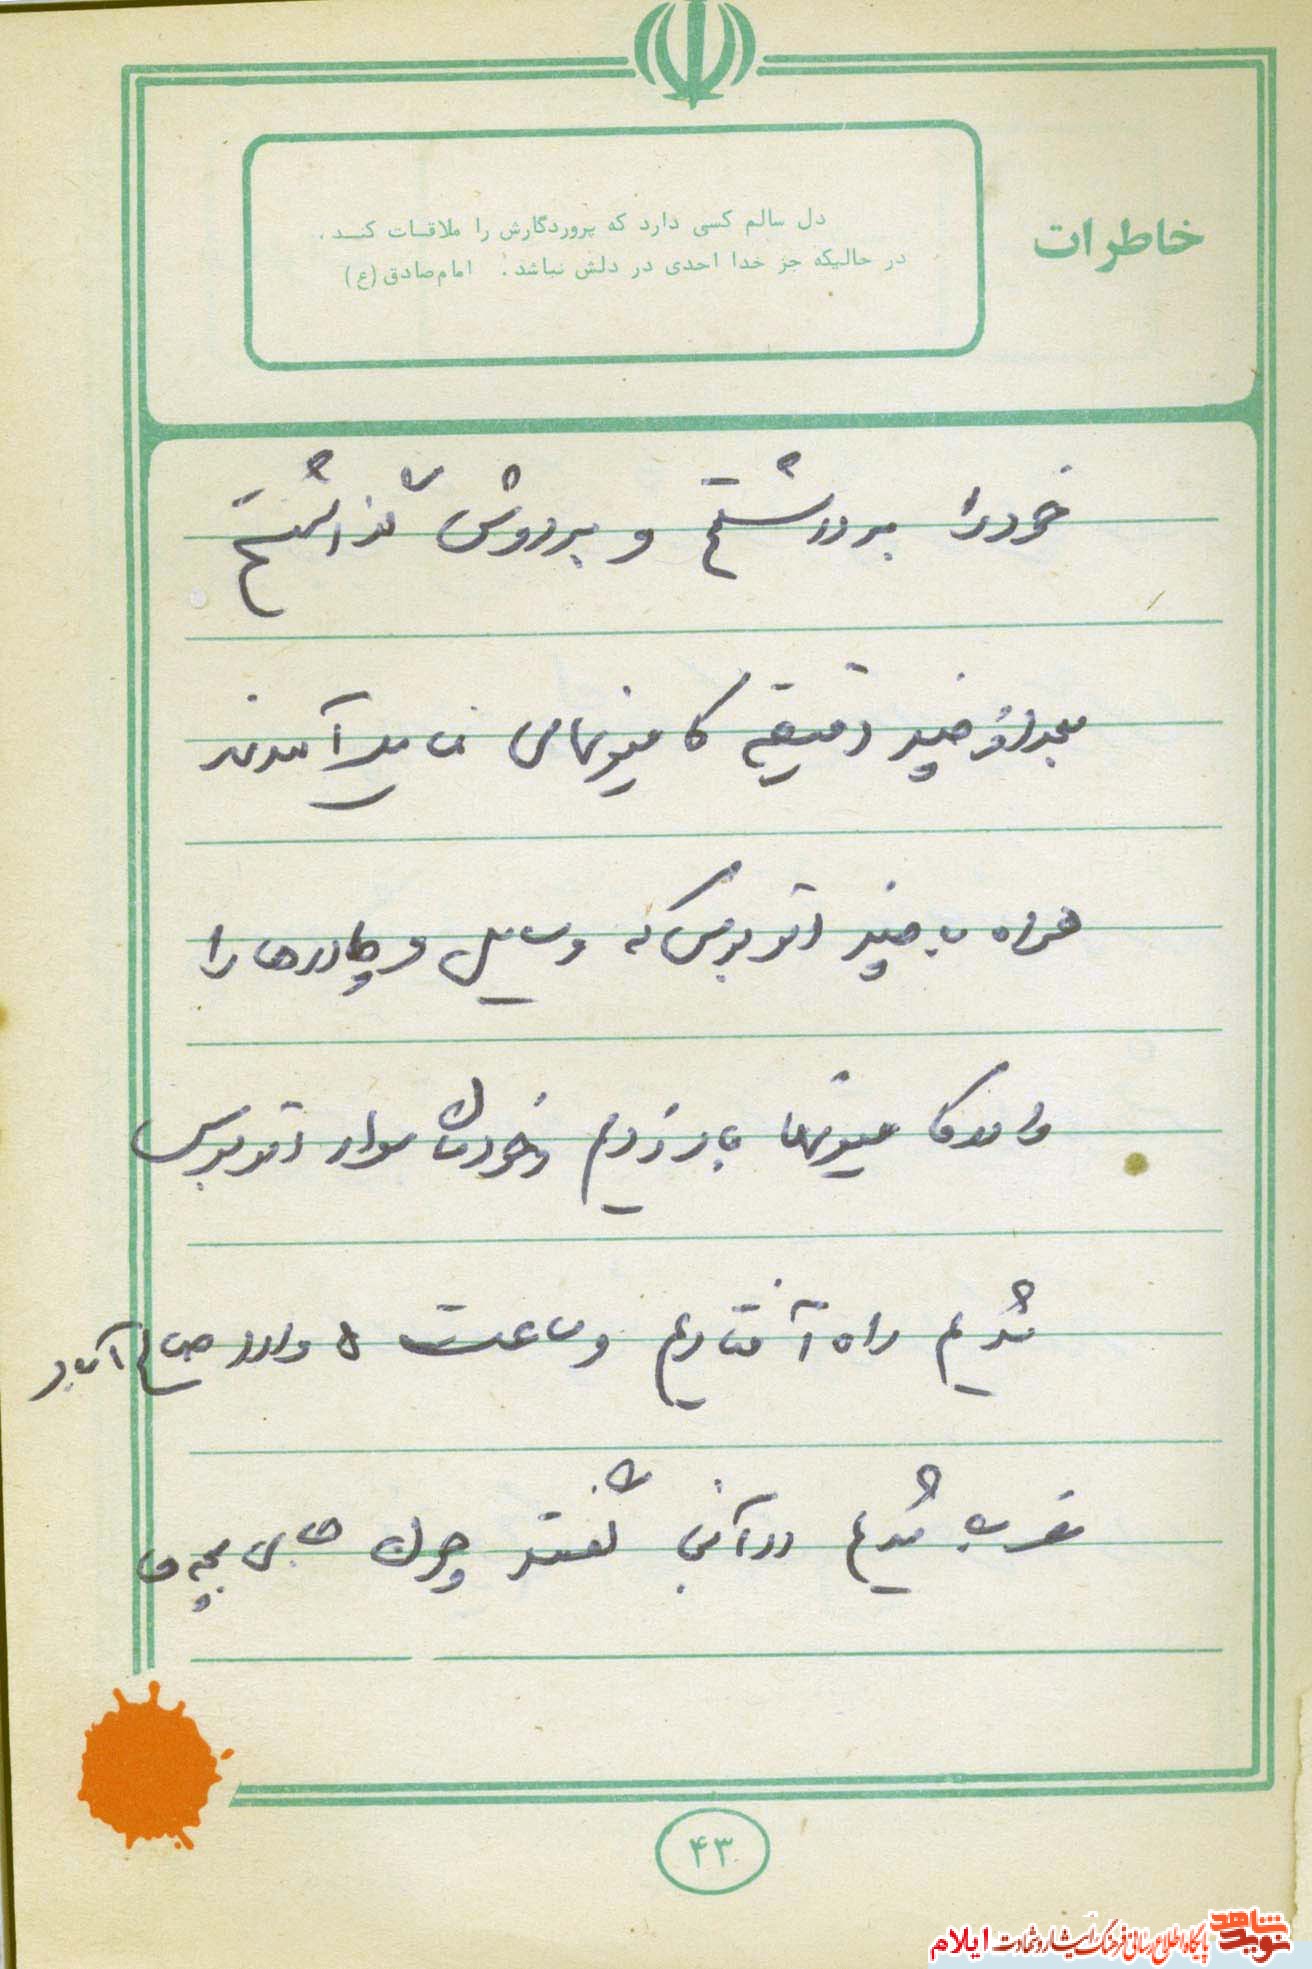 خاطرات
دل سالم کسی دارد که پروردگارش را ملاقات کنـد .
در حالیکه جز خدا احدی در دلش نباشد . امام صادق (ع)
خودرا برداشتیم و بردوش گذاشتیم
بعداز چند دقیقه کامیونهای آمدند
همراه با چند اتوبوس که وسایل و چادرها را
کامیونها بار زدیم و خودمان سوار اتوبوس
شدیم راه آفتادیم و ساعت ۵ وارد صالح آباد
غرب شدیم در آنجا گفتند چون بچه ها
۴۳
نوید شاهد
پایگاه اطلاع رسانی فرهنگ ایثار و شهادت ایلام